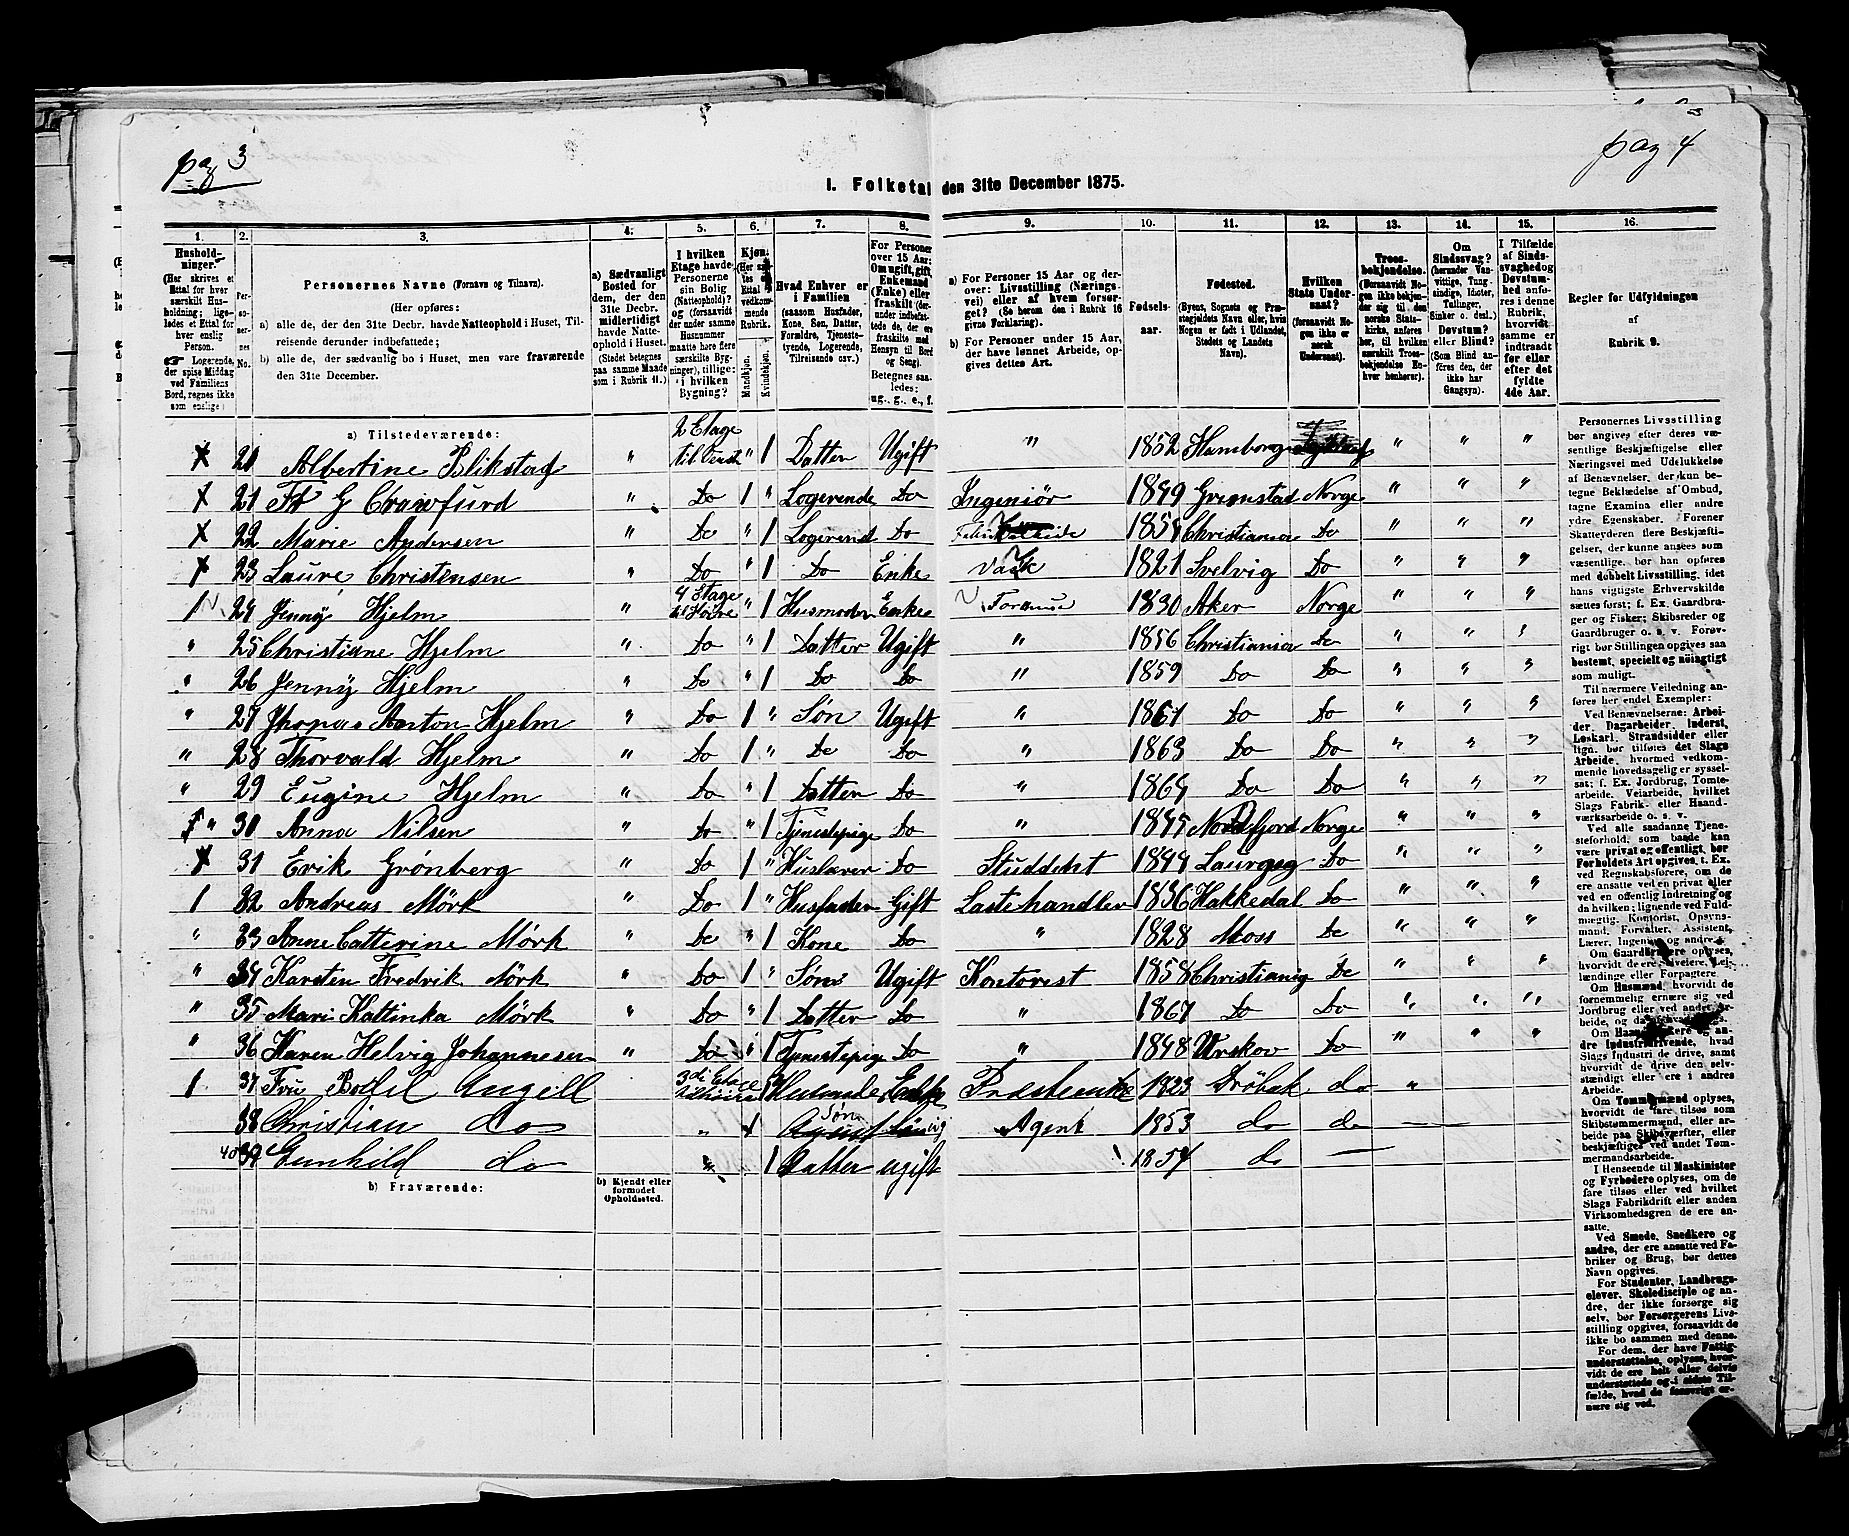 pag 3
pag 4
I. Folketal den 31te December 1875.
1. 2. 3. 4. 5. 6. 7. 8. 9. 10. 11. 12. 13. 14. 15. 16.
Husholdninger. (Her skrives et Ettal for hver særskilt Husholdning; ligeledes et Ettal for hver enslig Person. Logerende, der spise Middag ved Familiens Bord, regnes ikke som enslige)
Personernes No.
Personernes Navne (Fornavn og Tilnavn).
(Her opføres:
a) alle de, der den 31te Decbr. havde Natteophold i Huset, Tilreisende derunder indbefattede;
b) alle de, der sædvanlig bo i Huset, men vare fraværende den 31te December.
a) Sædvanligt Bosted for dem, der den 31te Decbr. midlertidigt havde Natteophold i Huset. (Stedet betegnes paa samme Maade som i Rubrik 11.)
I hvilken Etage havde Personerne sin Bolig (Natteophold)? og (forsaavidt der under samme Husnummer maatte høre flere særskilte Bygninger), tillige: i hvilken Bygning?
Kjøn. (Her sættes Ettal i vedkommende Rubrik. Mandkjøn. Kvindekjøn.
Hvad Enhver er i Familien (saasom Husfader, Kone, Søn, Datter, Forældre, Tjenestetyende, Logerende, Tilreisende osv.)
For Personer over 15 Aar: Om ugift, gift, Enkemand (Enke) eller fraskilt Betegnes saaledes: ug., g., e., f.
a) For Personer 15 Aar og derover: Livsstilling (Næringsvei) eller af hvem forsørget? (Se herom den i Rubrik 16 givne Forklaring).
b) For Personer under 15 Aar, der have lønnet Arbeide, opgives dettes Art.
Fødselsaar.
Fødested. (Byens, Sognets og Præstegjeldets Navn eller, hvis Nogen er født i Udlandet, Stedets og Landets Navn).
Hvilken Stats Undersaat? (forsaavidt Nogen ikke er norsk Undersaat).
Troesbekjendelse. (Forsaavidt Nogen ikke bekjender sig til den norske Statskirke, anføres her, til hvilken særskilte Troesbekjendelse Enhver henhører).
Om Sindssvag? (herunder Vanvittige, Tungsindige, Idioter, Tullinger, Sinker o. desl.) Døvstum? eller Blind? (Som Blind anføres den, der ikke har Gangsyn).
I Tilfælde af Sindssvaghed og Døvstumhed anføres i denne Rubrik, hvorvidt samme er indtraadt før eller efter det fyldte 4de Aar.
Regler for Udfyldningen af Rubrik 9.
a) Tilstedeværende:
20 Albertine Blikstad " 2 Etage til Venst " 1 Datter Ugift " 1852 Hamborg " " "
21 Fr G Crawfurd " Do 1 " Logerende Do Ingeniør 1849 Grimstad Norge " " "
22 Marie Andersen " Do " 1 Logerend Do 1854 Christiania Do " " "
23 Laure Christensen " Do " 1 Do Enke Vask 1821 Svelvig Do " " "
1 24 Jenny Hjelm " 4 Etage til Høire " 1 Husmoder Enke Formue 1830 Aker Norge " " "
" 25 Christiane Hjelm " Do " 1 Datter Ugift " 1856 Christiania Do " " "
" 26 Jenny Hjelm " Do " 1 Do Do " 1859 Do Do " " "
" 27 Thomas Anton Hjelm " Do 1 " Søn Ugift " 1861 Do Do " " "
" 28 Thorvald Hjelm " Do 1 " Do Do " 1863 Do Do " " "
" 29 Eugine Hjelm " Do " 1 Datter Do " 1864 Do Do " " "
" 30 Anna Nilsen " Do " 1 Tjenestepige Do " 1845 Nordfjord Norge " " "
31 Erik Grønberg " Do 1 " Huslærer Do Studdent 1849 Laurvig Do " " "
1 32 Andreas Mørk " Do 1 " Husfader Gift Lastehandler 1836 Hakkedal Do " " "
" 33 Anne Catterine Mørk " Do " 1 Kone Do " 1828 Moss Do " " "
" 34 Karsten Fredrik Mørk " Do 1 " Søn Ugift Kontorist 1858 Christiania Do " " "
" 35 Mari Kattinka Mørk " Do " 1 Datter Do " 1867 Do Do " " "
" 36 Karen Helvig Johannesen " Do " 1 Tjenestepige Do " 1848 Urskov Do " " "
1 37 Fru Bothil Angell 3di Etage 1 Husmode Enke Præsteenke 1823 Drøbak do "
38 Christian do " 1 Søn Agent 1853 do do
39 Gunhild do " 1 Datter ugift 1857 do
b) Fraværende:
b) Kjendt eller formodet Opholdssted.
Personernes Livsstilling bør angives efter deres væsentlige Beskjæftigelse eller Næringsvei med Udelukkelse af Benævnelser, der kun betegne Beklædelse af Ombud, tagne Examina eller andre ydre Egenskaber. Forener Skatteyderen flere Beskjæftigelser, der kunne ansees som væsentlige, bør han opføres med dobbelt Livsstilling, idet hans vigtigste Erhvervskilde sættes først; f. Ex. Gaardbruger og Fisker; Skibsreder og Gaardbruger o. s. v. Forøvrigt bør Stillingen opgives saa bestemt, specielt og nøiagtigt som muligt.
Til nærmere Veiledning anføres her følgende Exempler:
Ved Benævnelserne: Arbeider, Dagarbeider, Inderst, Løskarl, Strandsidder eller lign. bør tilføies det Slags Arbeide, hvormed vedkommende hovedsagelig er sysselsat; f. Ex. Jordbrug, Tomtearbeide, Veiarbeide, hvilket Slags Fabrik- eller Haandværksarbeide o. s. v.
Ved alle saadanne Tjenesteforhold, som baade kan være privat og offentligt, bør Forholdets Art opgives, t. Ex. ved Regnskabsførere, om de ere ansatte ved en privat eller ved en offentlig Indretning og da hvilken; lignende ved Fuldmægtig, Kontorist, Opsynsmand, Forvalter, Assistent, Lærer, Ingeniør og andre.
Om Gaardbrukere oplyses, hvorvidt de ere Selveiere, Leilændinge eller Forpagtere
Om Husmænd, hvorvidt de fornemmelig ernære sig ved Jordbrug eller ved andet Arbeide
Om Haandværkere og andre Industridrivende, hvad Slags Industri de drive, samt hvorvidt de drive den selvstændigt eller ere i andres Arbeide.
Om Tømmermænd oplyses, hvorvidt de fare tilsøs som Skibstømmermænd, eller arbeide paa Skibsværfter, eller beskjæftiges ved andet Tømmermandsarbeide.
I Henseende til Maskinister og Fyrbødere oplyses, om de fare tilsøs eller ved hvilket Slags Fabrikdrift eller anden Virksomhedsgren de ere ansatte.
Ved Smede, Snedkere og andre, der ere ansatte ved Fabriker og Brug, bør dettes Navn opgives.
For Studenter, Landbrugselever, Skoledisciple og andre, der ikke forsørge sig selv, bør Forsørgerens Livsstilling opgives, forsaavidt de ikke bo sammen med denne.
For dem, der have Fattigunderstøttelse, oplyses, hvorvidt de ere helt eller delvis understøttede og i sidste Tilfælde, hvad de forøvrigt ernære sig ved.